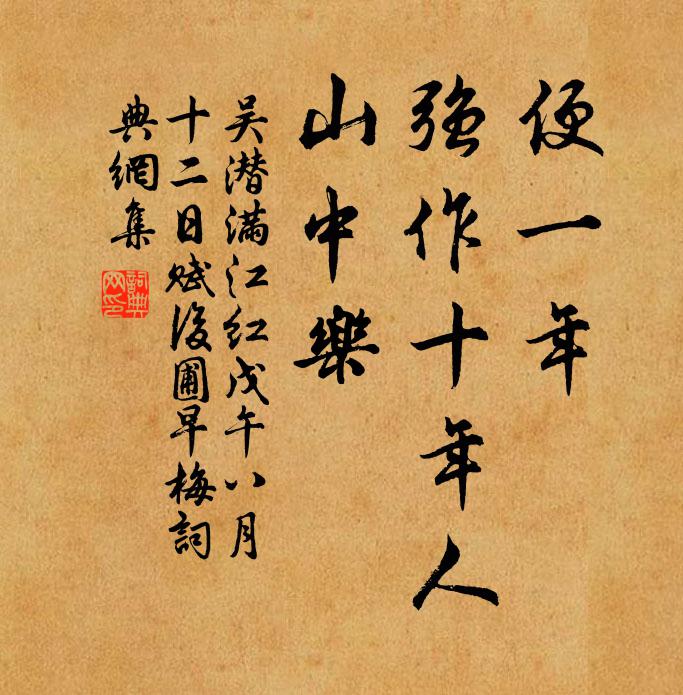 便一年
強作十年人
山中樂
吴潛滿江紅戊午八月
十二日賦後圃早梅詞
典網集
詞典
网印